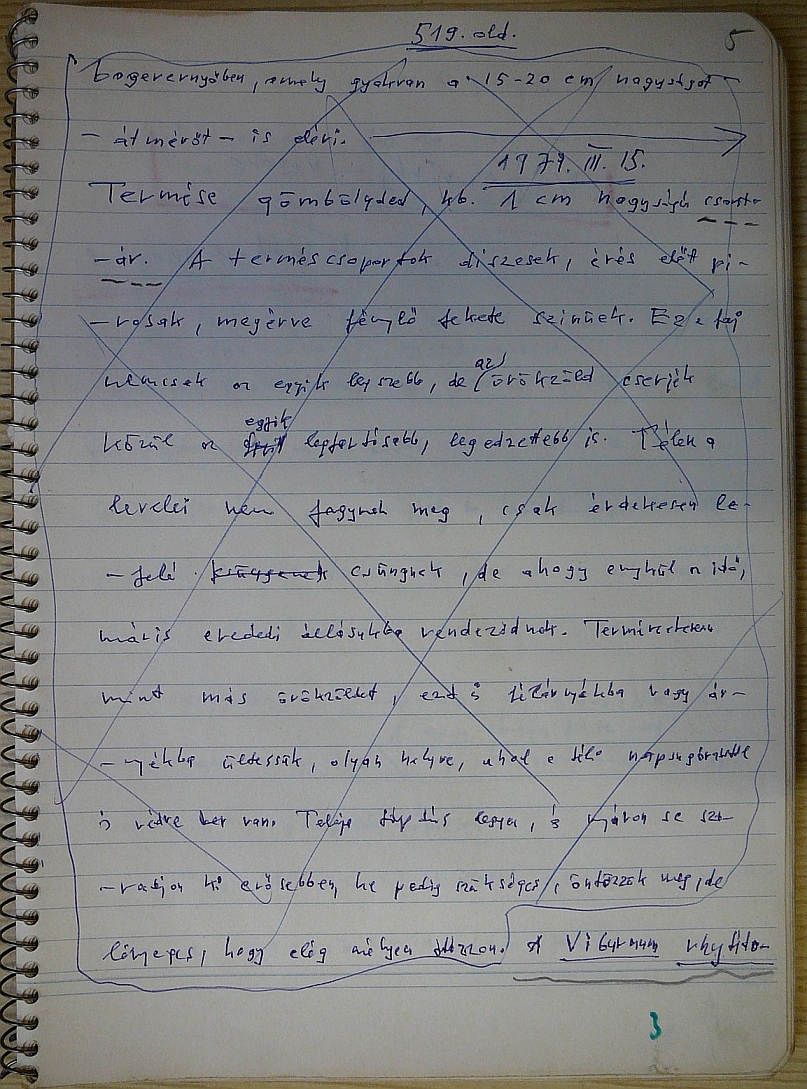 519. old.
5
bogernyőben, amely gyakran a 15-20 cm nagyságot -
- átmérőt - is eléri.
1979. III. 15.
Termése gömbölyded, kb. 1 cm nagyságú csonth-
-ár. A terméscsoportok díszesek, érés előtt pi-
-rosak, megérve fénylő fekete színűek. Ez a faj
nemcsak az egyik legszebb, de az örökzöld cserjék
közül az egyik legfartósabb, legedzettebb is. Télen a
levelei nem fagynak meg, csak érdekesen le-
-felé csüngnek, de ahogy enyhül az idő,
máris eredeti állásukba rendeződnek. Természetesen
mint más örökzöldet, ezt is félárnyékba vagy ár-
-nyékba ültessük, olyan helyre, ahol a téli napsugárzástól
is védve van. Talaja legyen, és nyáron se szá-
-radjon ki erősebben, ha pedig szükséges, öntözzük meg, de
lényeges, hogy elég mélyen ázzon. A Viburnum rhytido-
3